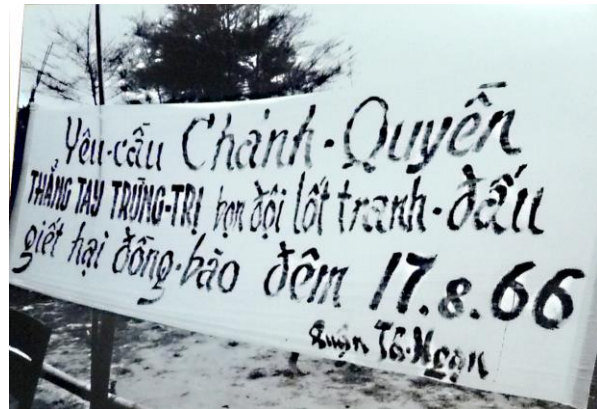 Yêu-cầu Chánh-Quyền
THẲNG TAY TRỪNG-TRỊ bọn đội lốt tranh-đấu
giết hại đồng-bào đêm 17.8.66
Quận Tã-Ngạn